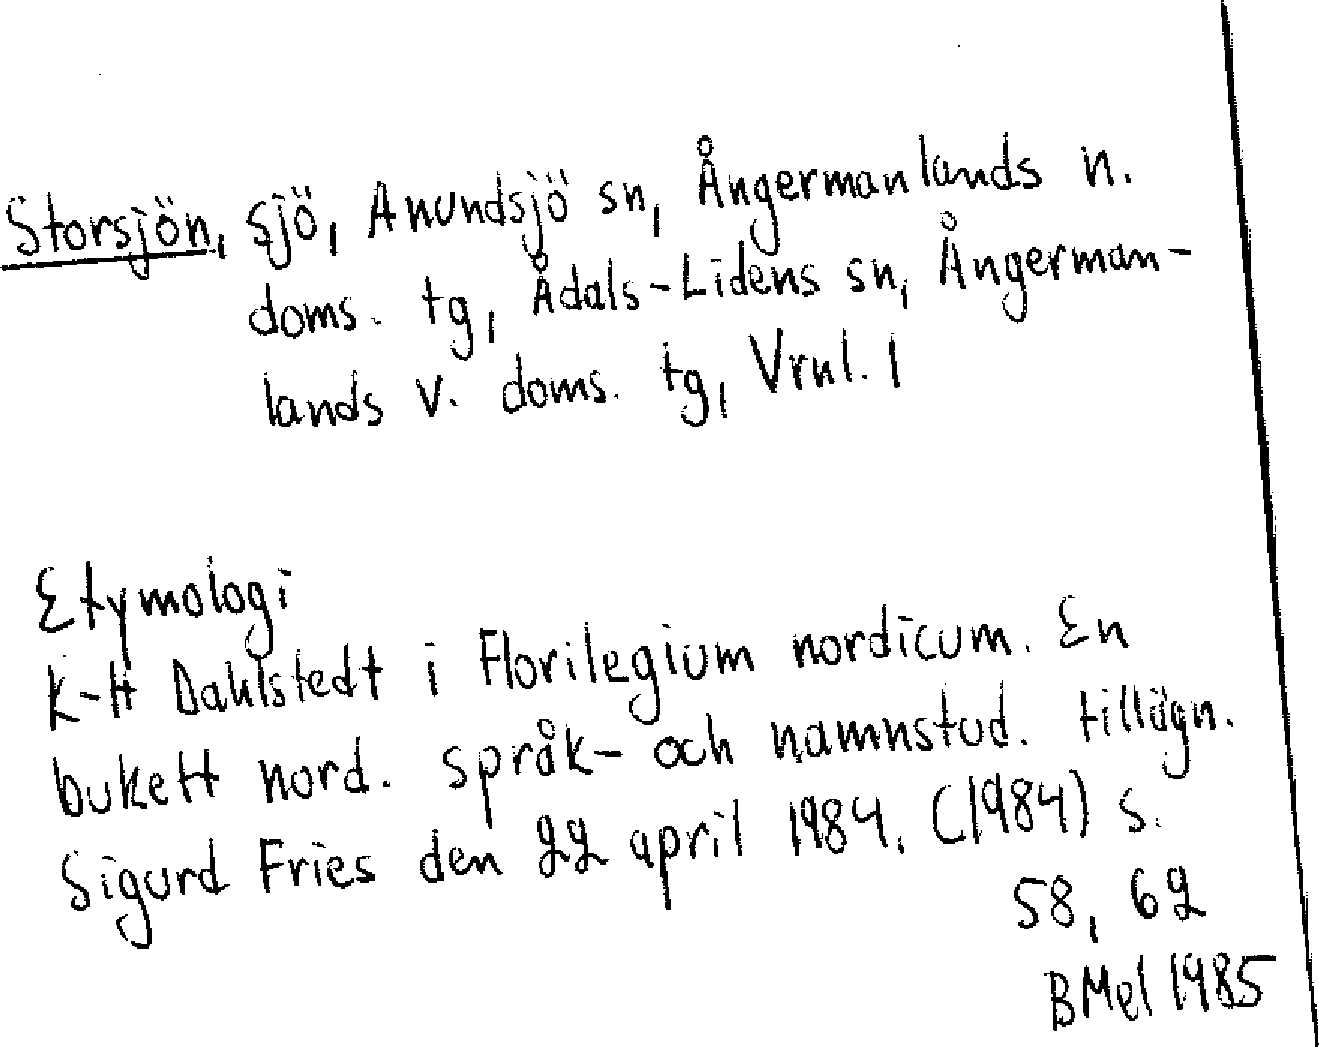 Storsjön, sjö, Anundsjö sn, Ångermanlands n.
doms. tg, Ådals-Lidens sn, Ångerman-
lands v. doms. tg, Vrnl. 1
Etymologi
K-H Dahlstedt i Florilegium nordicum. En
bukett nord. språk- och namnstud. tillägn.
Sigurd Fries den 22 april 1984. (1984) s.
58, 62
BMel 1985